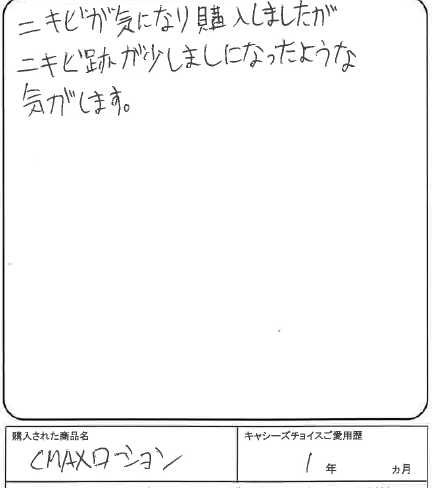 ニキビが気になり購入しましたが
ニキビ跡が少しましになったような
気がします。
購入された商品名
CMAXローション
キャシーズチョイスご愛用歴
1年 ヵ月